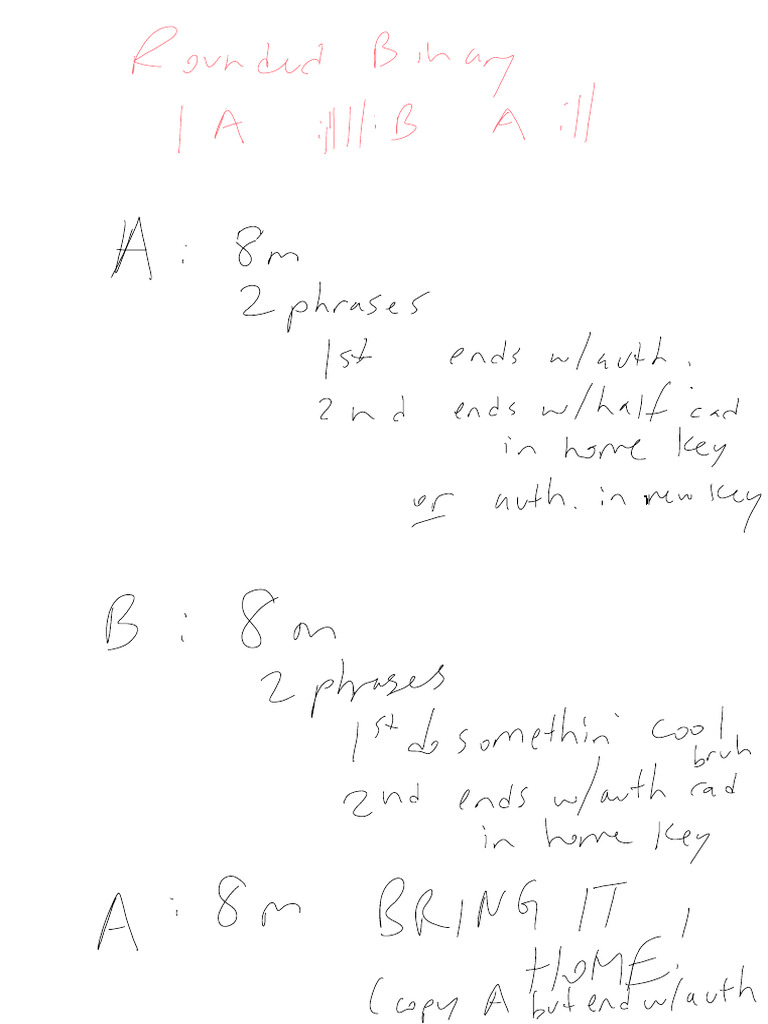 Rounded Binary
| A :||||: B A :||
A : 8m
2 phrases
1st ends w/auth.
2nd ends w/half cad
in home key
or auth. in new key
B : 8m
2 phrases
1st do somethin' cool
bruh
2nd ends w/auth cad
in home key
A : 8m BRING IT
HOME!
(copy A but end w/auth